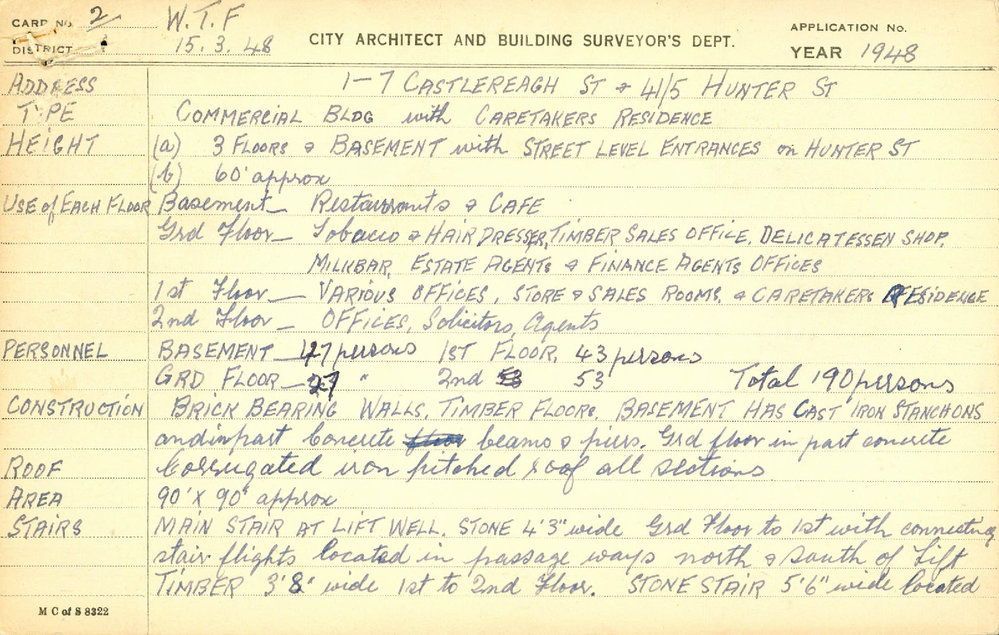 CARD No. 2 W.T.F APPLICATION No.
DISTRICT 15.3.48 CITY ARCHITECT AND BUILDING SURVEYOR'S DEPT. YEAR 1948
ADDRESS 1-7 CASTLEREAGH ST & 41/5 HUNTER ST
TYPE COMMERCIAL BLDG with CARETAKERS RESIDENCE
HEIGHT (a) 3 FLOORS & BASEMENT with STREET LEVEL ENTRANCES on HUNTER ST
(b) 60' approx
USE of EACH FLOOR Basement_ Restaurants & CAFE
Grd Floor_ Tobacco & HAIR DRESSER, TIMBER SALES OFFICE, DELICATESSEN SHOP,
MILKBAR, ESTATE AGENTS & FINANCE AGENTS OFFICES
1st Floor_ VARIOUS OFFICES, STORE & SALES ROOMS, & CARETAKERS RESIDENCE
2nd Floor_ OFFICES, Solicitors, Agents
PERSONNEL BASEMENT_ 47 persons 1ST FLOOR, 43 persons
GRD FLOOR_ 27 " 2nd 53 53 Total 190 persons
CONSTRUCTION BRICK BEARING WALLS, TIMBER FLOORS, BASEMENT HAS CAST IRON STANCHONS
and in part Concrete floor beams & piers. Grd floor in part concrete
ROOF Corrugated iron pitched roof all sections
AREA 90' X 90' approx
STAIRS MAIN STAIR AT LIFT WELL. STONE 4'3" wide Grd Floor to 1st with connecting
stair flights located in passage ways north & south of Lift
TIMBER 3'8" wide 1st to 2nd Floor. STONE STAIR 5'6" wide located
M C of S 8322